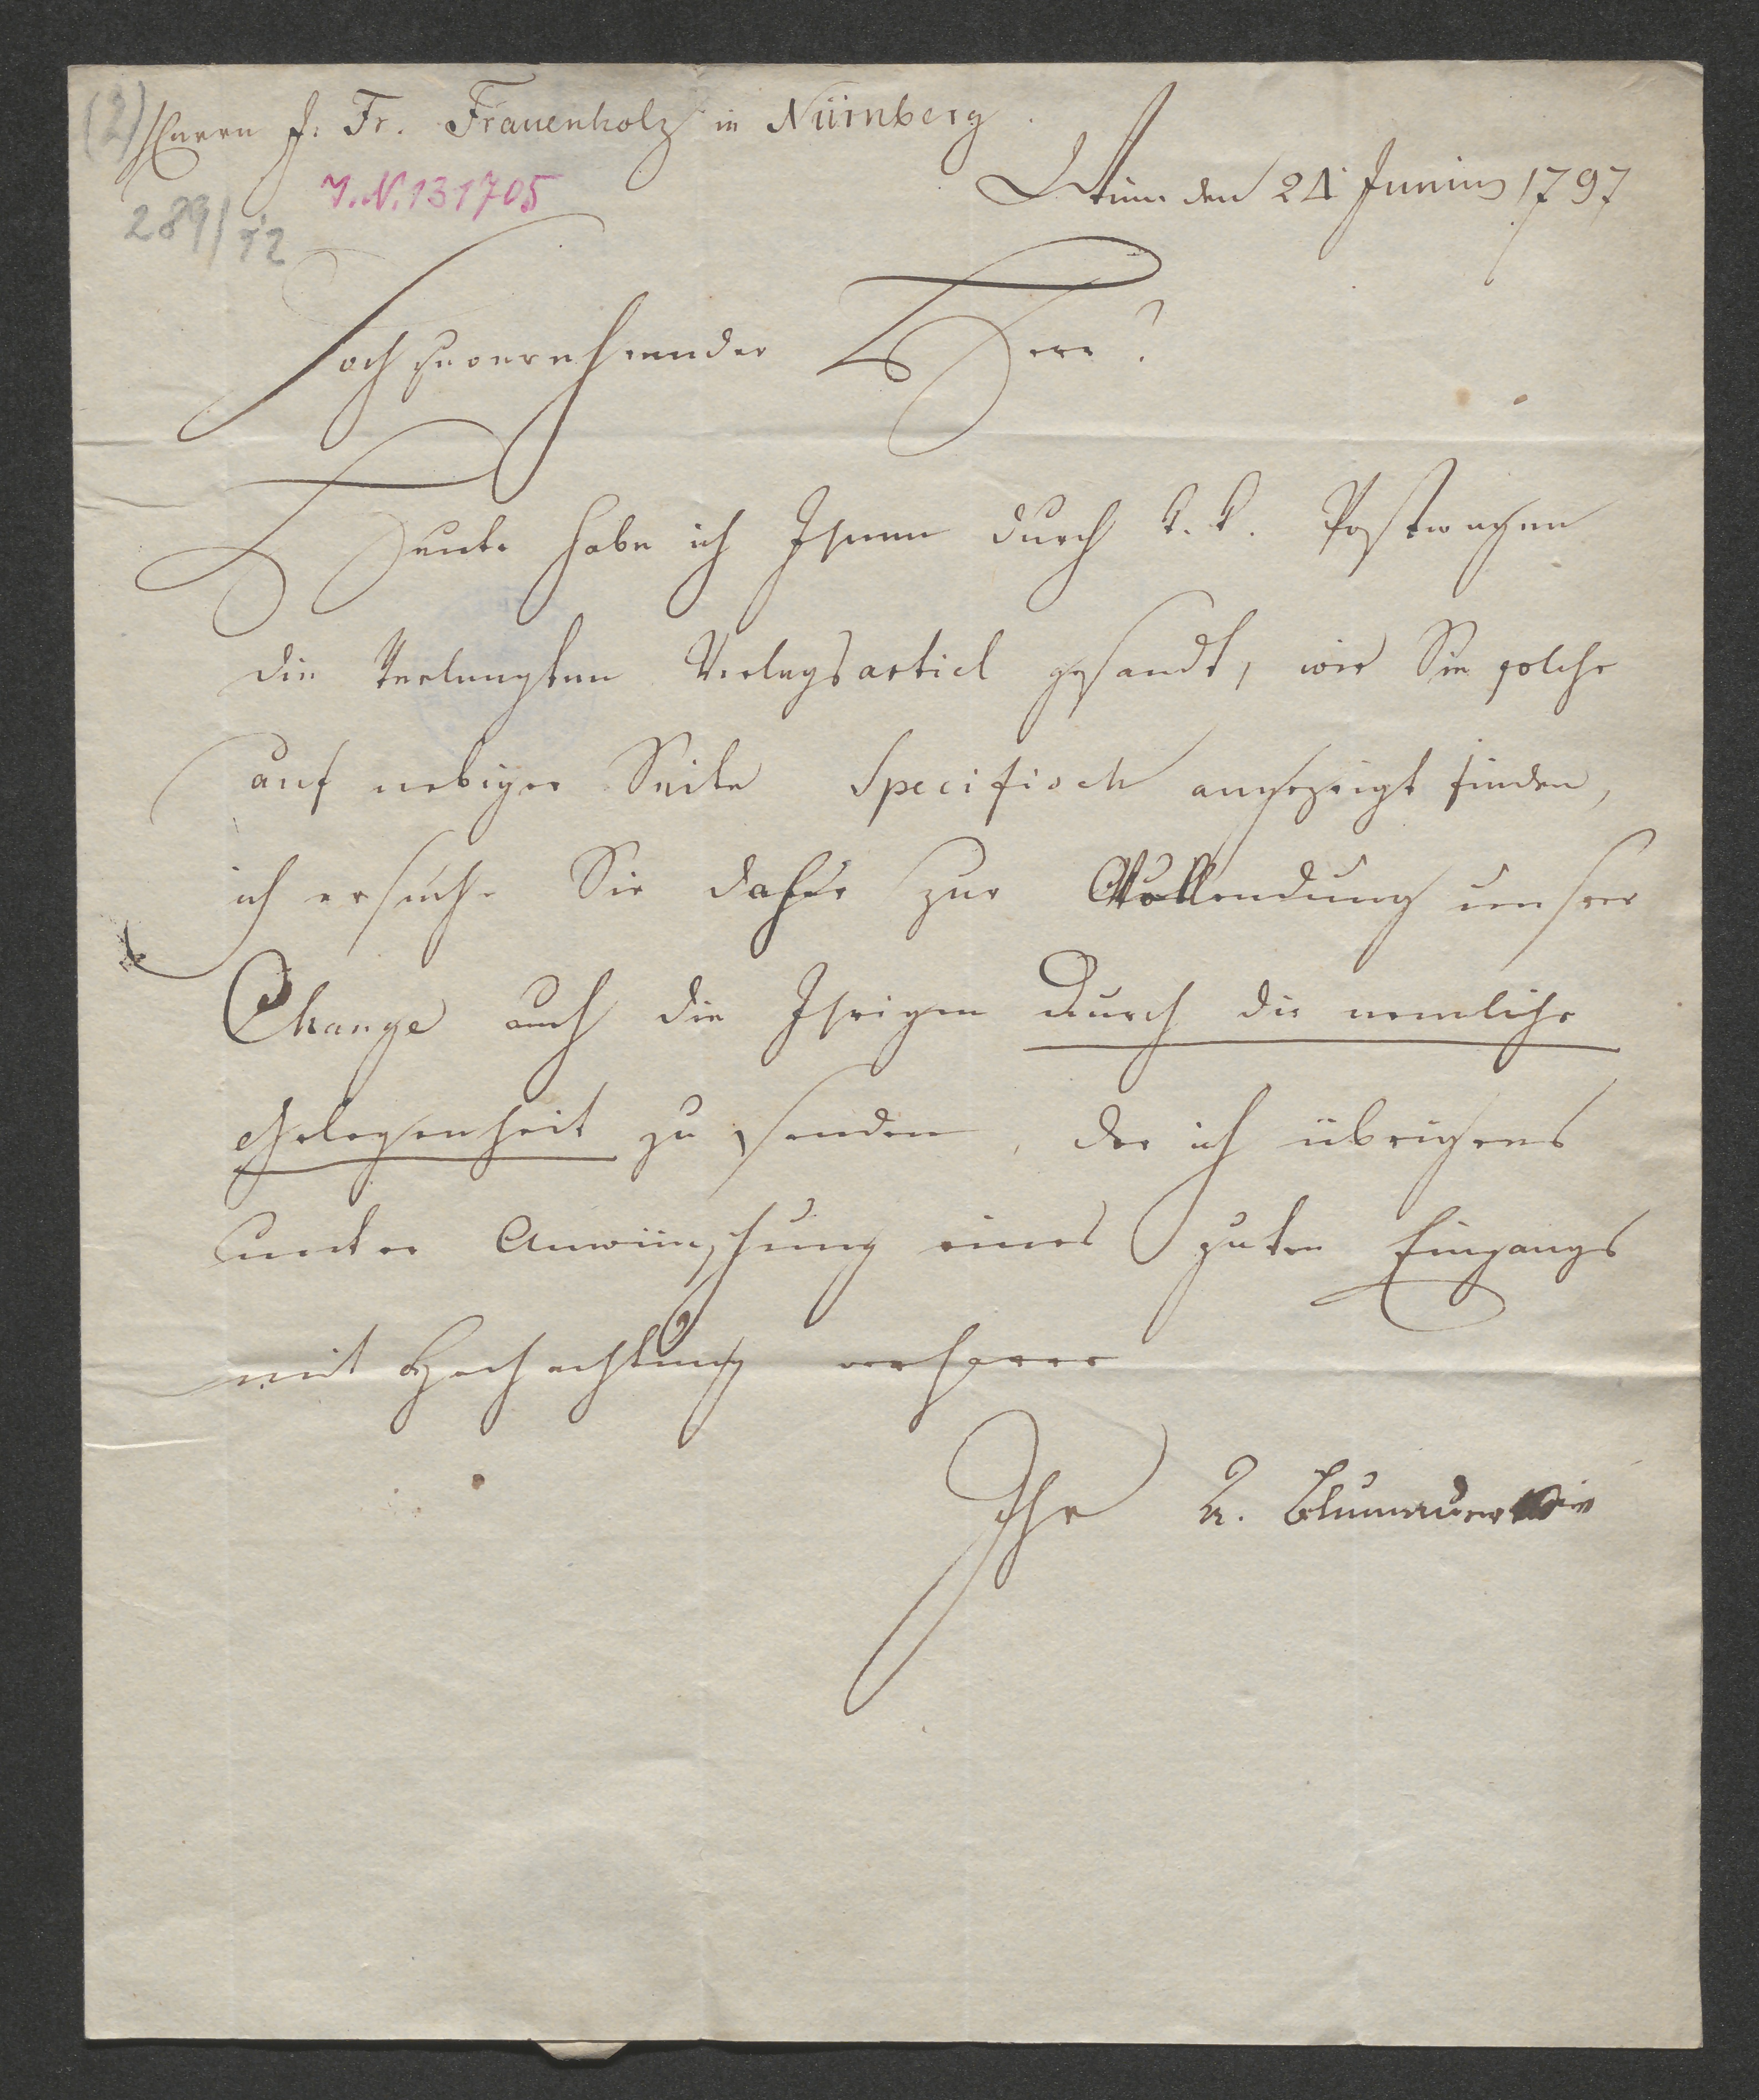 (2) Herrn J. Fr. Frauenholz in Nürnberg.
I.N. 131705
289/12
Wien den 24 Junius 1797
Hochzuverehrender Herr!
Heute habe ich Ihnen durch k. k. Postwagen
die Verlangten Verlagsartickl gesandt, wie Sie solche
auf nebiger Seite Specifisch angezeigt finden,
ich ersuche Sie daher zur Vollendung unsrer
Change auch die Ihrigen durch die nemliche
Gelegenheit zu senden, der ich übrigens
unter Anwünschung eines guten Eingangs
mit Hochachtung verharre
Ihr A. Blumauer